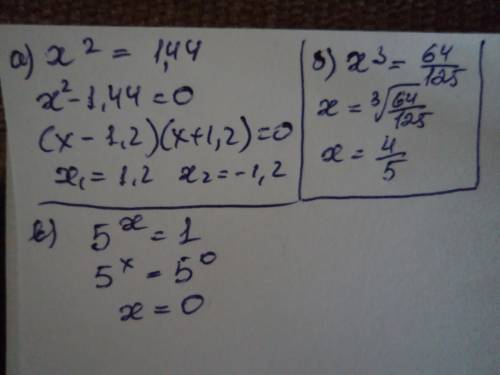 а) x² = 1,44
x² - 1,44 = 0
(x - 1,2)(x + 1,2) = 0
x₁ = 1,2 x₂ = -1,2
б) x³ = 64/125
x = ³√(64/125)
x = 4/5
в) 5ˣ = 1
5ˣ = 5⁰
x = 0